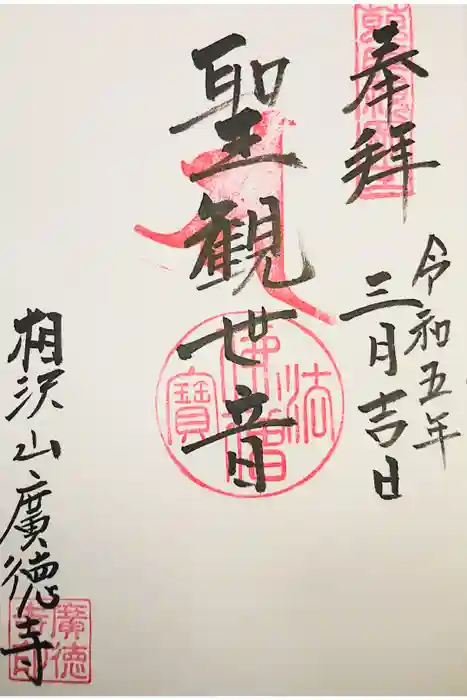 奉拜
令和五年
三月吉日
聖観世音
佛法僧寶
相沢山廣徳寺
廣徳寺印